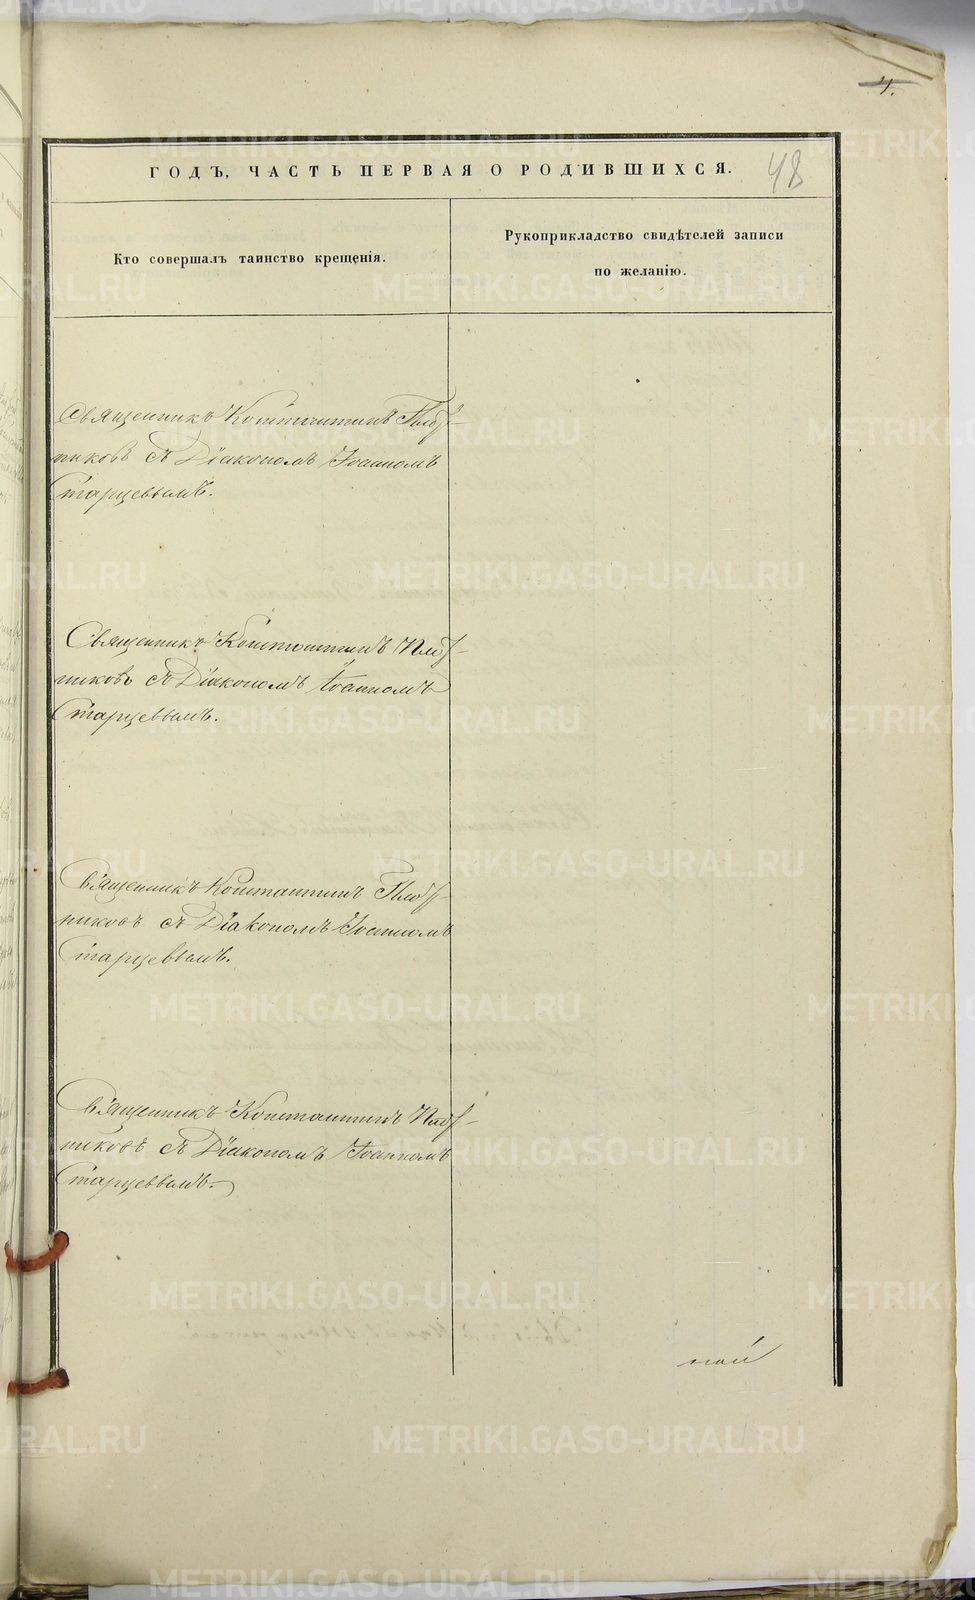 4.
ГОДЪ, ЧАСТЬ ПЕРВАЯ О РОДИВШИХСЯ.
48
Кто совершалъ таинство крещенія.
Рукоприкладство свидѣтелей записи
по желанію.
Священникъ Константинъ Плот-
никовъ съ Діакономъ Іоанномъ
Старцевымъ.
Священникъ Константинъ Плот-
никовъ съ Діакономъ Іоанномъ
Старцевымъ.
Священникъ Константинъ Плот-
никовъ съ Діакономъ Іоанномъ
Старцевымъ.
Священникъ Константинъ Плот-
никовъ съ Діакономъ Іоанномъ
Старцевымъ.
ной
METRIKI.GASO-URAL.RU